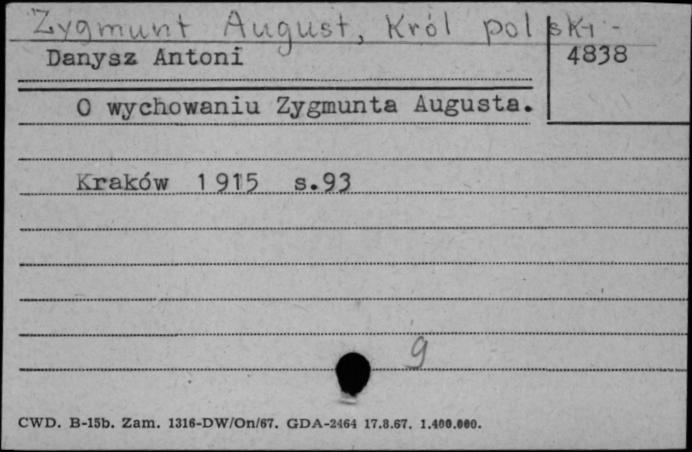 Zygmunt August, Król polski -
Danysz Antoni
4838
O wychowaniu Zygmunta Augusta.
Kraków 1915 s.93
9
CWD. B-15b. Zam. 1316-DW/On/67. GDA-2464 17.8.67. 1.400.000.